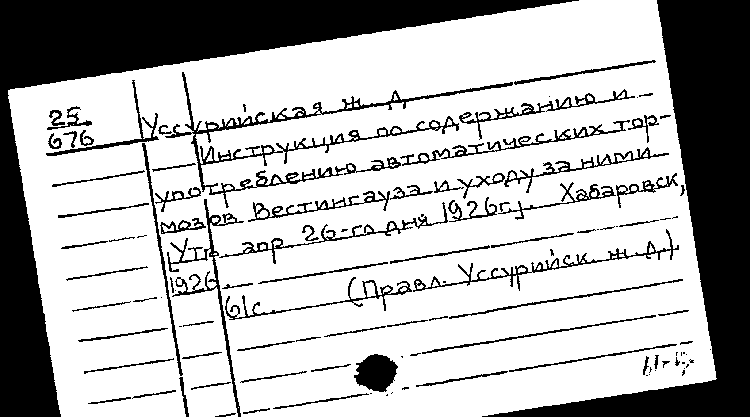 25
676
Уссурийская ж. д.
Инструкция по содержанию и
употреблению автоматических тор-
мозов Вестингауза и уходу за ними
[Утв. апр. 26-го дня 1926г.]. Хабаровск,
1926.
61с. (Правл. Уссурийск. ж. д.).